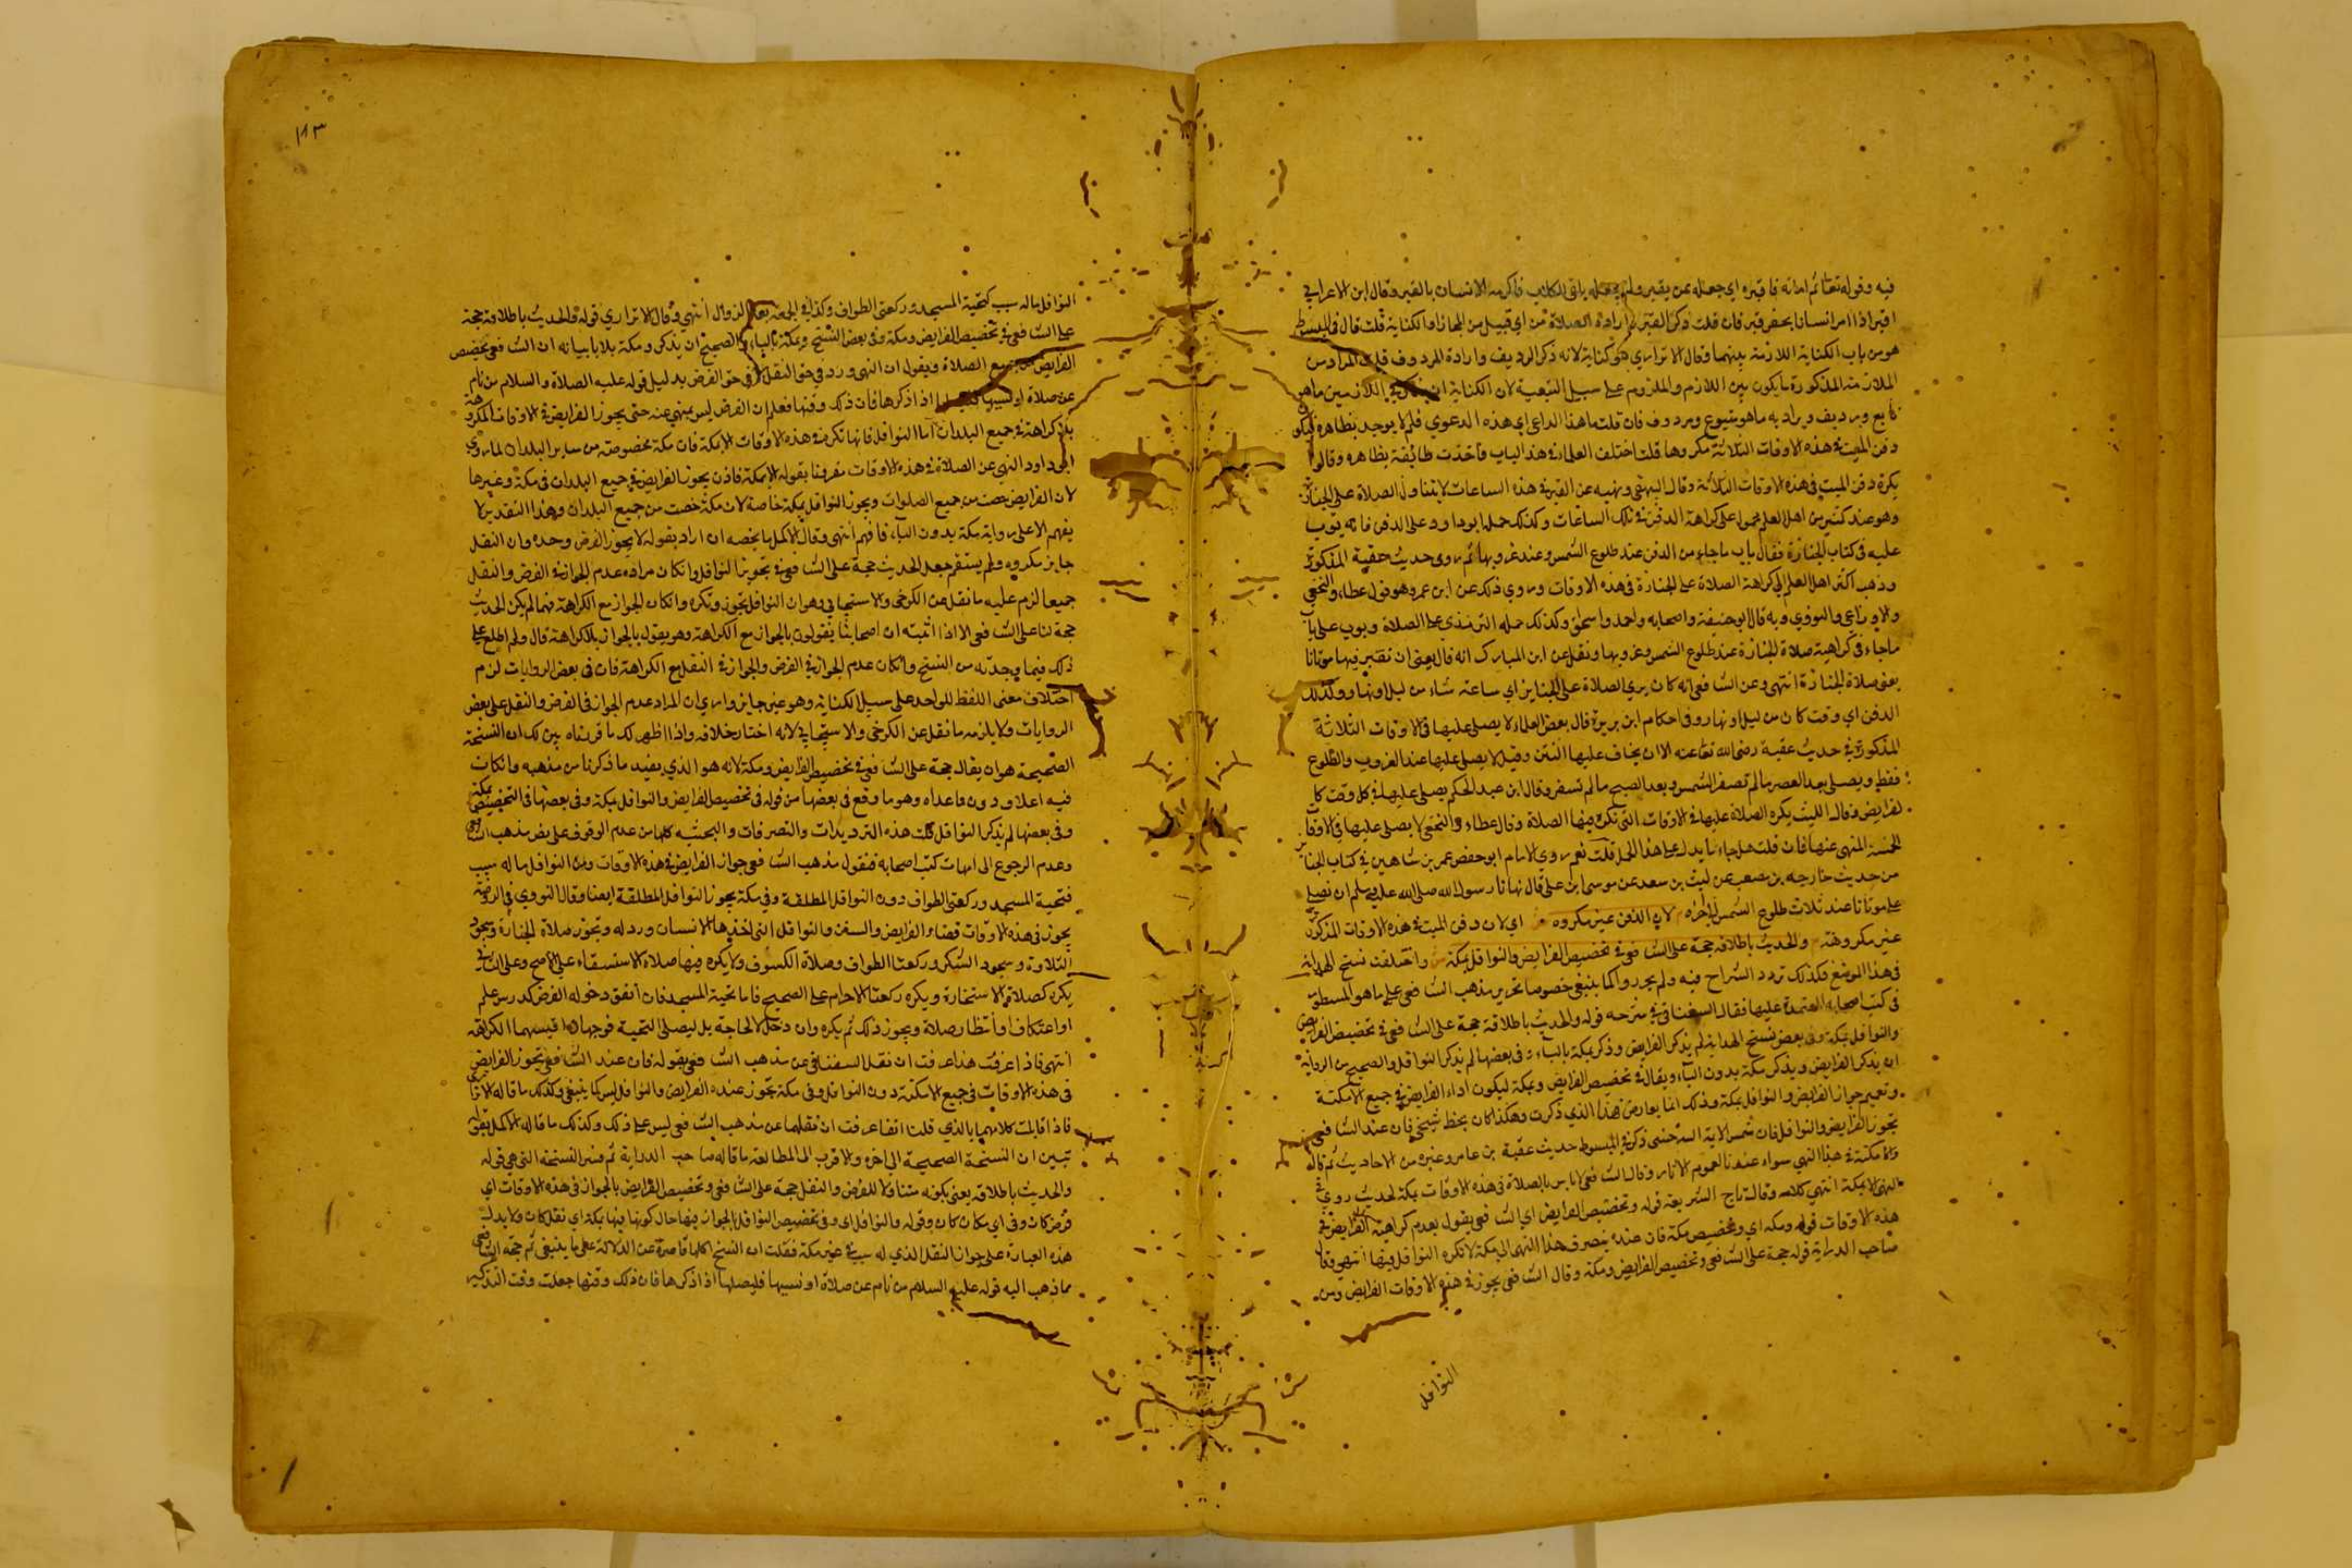 فيه وقوله تعالى ثم اماته فاقبره اي جعله ممن يقبر ولم يجعله يلقى للكلاب فاكرم الانسان بالقبر وقال ابن الاعرابي
اقبر اذا امر انسانا بحفر قبر فان قلت ذكر القبر وارادة الصلاة من اي قبيل من المجاز او الكناية قلت قال في المبسوط
هو من باب الكناية اللازمة بينهما وقال الاتراري هو كناية لانه ذكر الرديف وارادة المردوف قلت المراد من
الملازمة المذكورة ما يكون بين اللازم والملزوم على سبيل التبعية لان الكناية ان اللازمين ما هو
تابع ورديف ويراد به ما هو متبوع ومردوف فان قلت ما هذا الداعي اي هذه الدعوي فلم لا يوجد بظاهره ليكون
دفن الميت في هذه الاوقات الثلاثة مكروها قلت اختلف العلماء في هذا الباب فاخذت طائفة بظاهره وقالوا
يكره دفن الميت في هذه الاوقات الثلاثة وقال البيهقي ونهيه عن القبر في هذه الساعات لا يتناول الصلاة على الجنائز
وهو عند كثير من اهل العلم محمول على كراهة الدفن في تلك الساعات وكذلك حمله ابو داود على الدفن فانه بوب
عليه في كتاب الجنازة فقال باب ما جاء من الدفن عند طلوع الشمس وعند غروبها ثم روى حديث عقبة المذكور
وذهب اكثر اهل العلم الى كراهة الصلاة على الجنازة في هذه الاوقات وروي ذلك عن ابن عمر وهو قول عطاء والنخعي
والاوزاعي والثوري وبه قال ابو حنيفة واصحابه واحمد واسحق وكذلك حمله الترمذي على الصلاة وبوب عليه باب
ما جاء في كراهية صلاة الجنازة عند طلوع الشمس وغروبها ونقل عن ابن المبارك انه قال يعني ان نقبر فيها موتانا
يعني صلاة الجنازة انتهى وعن الشافعي انه كان يري الصلاة على الجنايز اي ساعة شاء من ليل او نهار وكذلك
الدفن اي وقت كان من ليل او نهار وفي احكام ابن بزيزة قال بعض العلماء لا يصلى عليها في الاوقات الثلاثة
المذكورة في حديث عقبة رضي الله تعالى عنه الا ان يخاف عليها النتن وقيل لا يصلى عليها عند الغروب والطلوع
فقط ويصلى بعد العصر ما لم تصفر الشمس وبعد الصبح ما لم تسفر وقال ابن عبد الحكم يصلى عليها في كل وقت كا
لفرايض وقال الليث يكره الصلاة عليها في الاوقات التي تكره فيها الصلاة وقال عطاء والنخعي لا يصلى عليها في الاوقات
الخمسة المنهي عنها فان قلت هل جاء ما يدل على هذا الحمل قلت نعم روي الامام ابو حفص عمر بن شاهين في كتاب الجنائز
من حديث خارجة بن مصعب عن ليث بن سعد عن موسى ابن على قال نهانا رسول الله صلى الله عليه وسلم ان نصلي
على موتانا عند ثلاث طلوع الشمس الى اخره لان الدفن غير مكروه اي لان دفن الميت في هذه الاوقات المذكورة
غير مكروهة والحديث باطلاقه حجة على الشافعي في تخصيص الفرايض والنوافل بمكة واختلفت نسخ الهداية
في هذا الموضع فكذلك تردد الشراح فيه ولم يحرروا كما ينبغي خصوصا تحرير مذهب الشافعي على ما هو المسطور
في كتب اصحابه المعتمدة عليها فقال السغناقي في شرحه قوله والحديث باطلاقه حجة على الشافعي في تخصيص الفرايض
والنوافل بمكة وفي بعض نسخ الهداية لم يذكر الفرايض وذكر بمكة بالباء وفي بعضها لم يذكر النوافل والصحيح من الرواية
ان يذكر الفرايض ويذكر مكة بدون الباء ويقال في تخصيص الفرايض وبمكة ليكون اداء الفرايض في جميع الامكنة
وتعميم جواز الفرايض والنوافل بمكة وذلك انما يعارض هذا الذي ذكرت وهكذا كان بخط شيخي فان عند الشافعي
تجوز الفرايض والنوافل فان شمس الاية السرخسي ذكر في المبسوط حديث عقبة بن عامر وغيره من الاحاديث ثم قال
والامكنة في هذا النهي سواء عندنا لعموم الاثار وقال الشافعي لا باس بالصلاة في هذه الاوقات بمكة لحديث روي في
النهي الا بمكة انتهى كلامه وقال تاج الشريعة قوله وتخصيص الفرايض اي الشافعي يقول بعدم كراهية الفرايض في
هذه الاوقات قوله ومكة اي وتخصيص مكة فان عنده ينصرف هذا النهي الى مكة لا تكره النوافل فيها انتهى وقال
صاحب الدراية قوله حجة على الشافعي وتخصيص الفرايض ومكة وقال الشافعي يجوز في هذه الاوقات الفرايض ومن
النوافل
١١٣
النوافل ماله سبب كتحية المسجد وركعتي الطواف وكذا في الجمعة بعد الزوال انتهى وقال الاتراري قوله والحديث باطلاقه حجة
على الشافعي في تخصيص الفرايض ومكة وفي بعض النسخ وبمكة بالباء والصحيح ان يذكر ومكة بلا با بيانه ان الشافعي يخصص
الفرايض من جميع الصلاة ويقول ان النهي ورد في حق النفل لا في حق الفرض بدليل قوله عليه الصلاة والسلام من نام
عن صلاة او نسيها فليصلها اذا ذكرها فان ذلك وقتها فعلم ان الفرض ليس بمنهي عنه حتى يجوز الفرايض في الاوقات المكروهة
بلا كراهة في جميع البلدان اما النوافل فانها تكره في هذه الاوقات الا بمكة فان مكة مخصوصة من ساير البلدان لما روي
ابو داود النهي عن الصلاة في هذه الاوقات مقرونا بقوله الا بمكة فاذن يجوز الفرايض في جميع البلدان في مكة وغيرها
لان الفرايض خصت من جميع الصلوات ويجوز النوافل بمكة خاصة لان مكة خصت من جميع البلدان وهذا التقدير لا
يفهم الا على رواية مكة بدون الباء فافهم انتهى وقال الاكمل ما يخصه ان اراد بقوله لا يجوز الفرض وحده وان النفل
جايز مكروه ولم يستقم جعل الحديث حجة على الشافعي في تجويز النوافل وان كان مراده عدم الجواز في الفرض والنفل
جميعا لزم عليه ما نقل عن الكرخي والاسبيجابي وهو ان النوافل تجوز وتكره وان كان الجواز مع الكراهة فيهما لم يكن الحديث
حجة لنا على الشافعي الا اذا اثبته ان اصحابنا يقولون بالجواز مع الكراهة وهو يقول بالجواز بلا كراهة قال ولم اطلع على
ذلك فيما وجدته من النسخ وان كان عدم الجواز في الفرض والجواز في النفل مع الكراهة فان في بعض الروايات لزم
اختلاف معنى اللفظ الواحد على سبيل الكناية وهو غير جايز واري ان المراد عدم الجواز في الفرض والنفل على بعض
الروايات ولا يلزمه ما نقل عن الكرخي والاسبيجابي لانه اختار خلافه واذا ظهر لك ما قررناه تبين لك ان النسخة
الصحيحة هو ان يقال حجة على الشافعي في تخصيص الفرايض ومكة لانه هو الذي يفيد ما ذكرنا من مذهبه وان كان
فيه اعلاق دون ما عداه وهو ما وقع في بعضها من قوله في تخصيص الفرايض والنوافل بمكة وفي بعضها في التخصيص بمكة
وفي بعضها لم يذكر النوافل قلت هذه الترديدات والتصرفات والبحثية كلها من عدم الوقوف على نص مذهب الشافعي
وعدم الرجوع الى امهات كتب اصحابه فنقول مذهب الشافعي جواز الفرايض في هذه الاوقات ومن النوافل ما له سبب
فتحية المسجد وركعتي الطواف دون النوافل المطلقة وفي مكة يجوز النوافل المطلقة ايضا وقال النووي في الروضة
يجوز في هذه الاوقات قضاء الفرايض والسنن والنوافل التي اتخذها الانسان وردا له وتجوز صلاة الجنازة وسجود
التلاوة وسجود الشكر وركعتا الطواف وصلاة الكسوف ولا يكره فيها صلاة الاستسقاء على الاصح وعلى الثاني
يكره كصلاة الاستخارة ويكره ركعتا الاحرام على الصحيح فاما تحية المسجد فان اتفق دخوله لغرض كدرس علم
او اعتكاف او انتظار صلاة ويجوز ذلك لم يكره وان دخل لا لحاجة بل ليصلى التحية فوجهان اقيسهما الكراهة
انتهى فاذا عرفت هذا عرفت ان نقل السغناقي عن مذهب الشافعي بقوله فان عند الشافعي تجوز الفرايض
في هذه الاوقات في جميع الامكنة دون النوافل وفي مكة تجوز عنده الفرايض والنوافل ليس كما ينبغي وكذلك ما قاله الاتراري
فاذا قابلت كلامهما بالذي قلنا انفا عرفت ان نقلهما عن مذهب الشافعي ليس على ذلك وكذلك ما قاله الاكمل بقوله
تبين ان النسخة الصحيحة الى اخره والاقرب الى المطالعة ما قاله صاحب الدراية ثم فسر النسخة التي هي قوله
والحديث باطلاقه يعني بكونه متناولا للفرض والنفل حجة على الشافعي وتخصيص الفرايض بالجواز في هذه الاوقات اي
فرض كان وفي اي مكان كان وقوله والنوافل اي وفي تخصيص النوافل بالجواز فيها حال كونها فيها بمكة اي نفل كان ولا يدل
هذه العبارة على جواز النفل الذي له سبب في غير مكة فقلت ان النسخ كلها قاصرة عن الدلالة على ما ينبغي ثم حجة الشافعي
بما ذهب اليه قوله عليه السلام من نام عن صلاة او نسيها فليصلها اذا ذكرها فان ذلك وقتها جعلت وقت التذكير